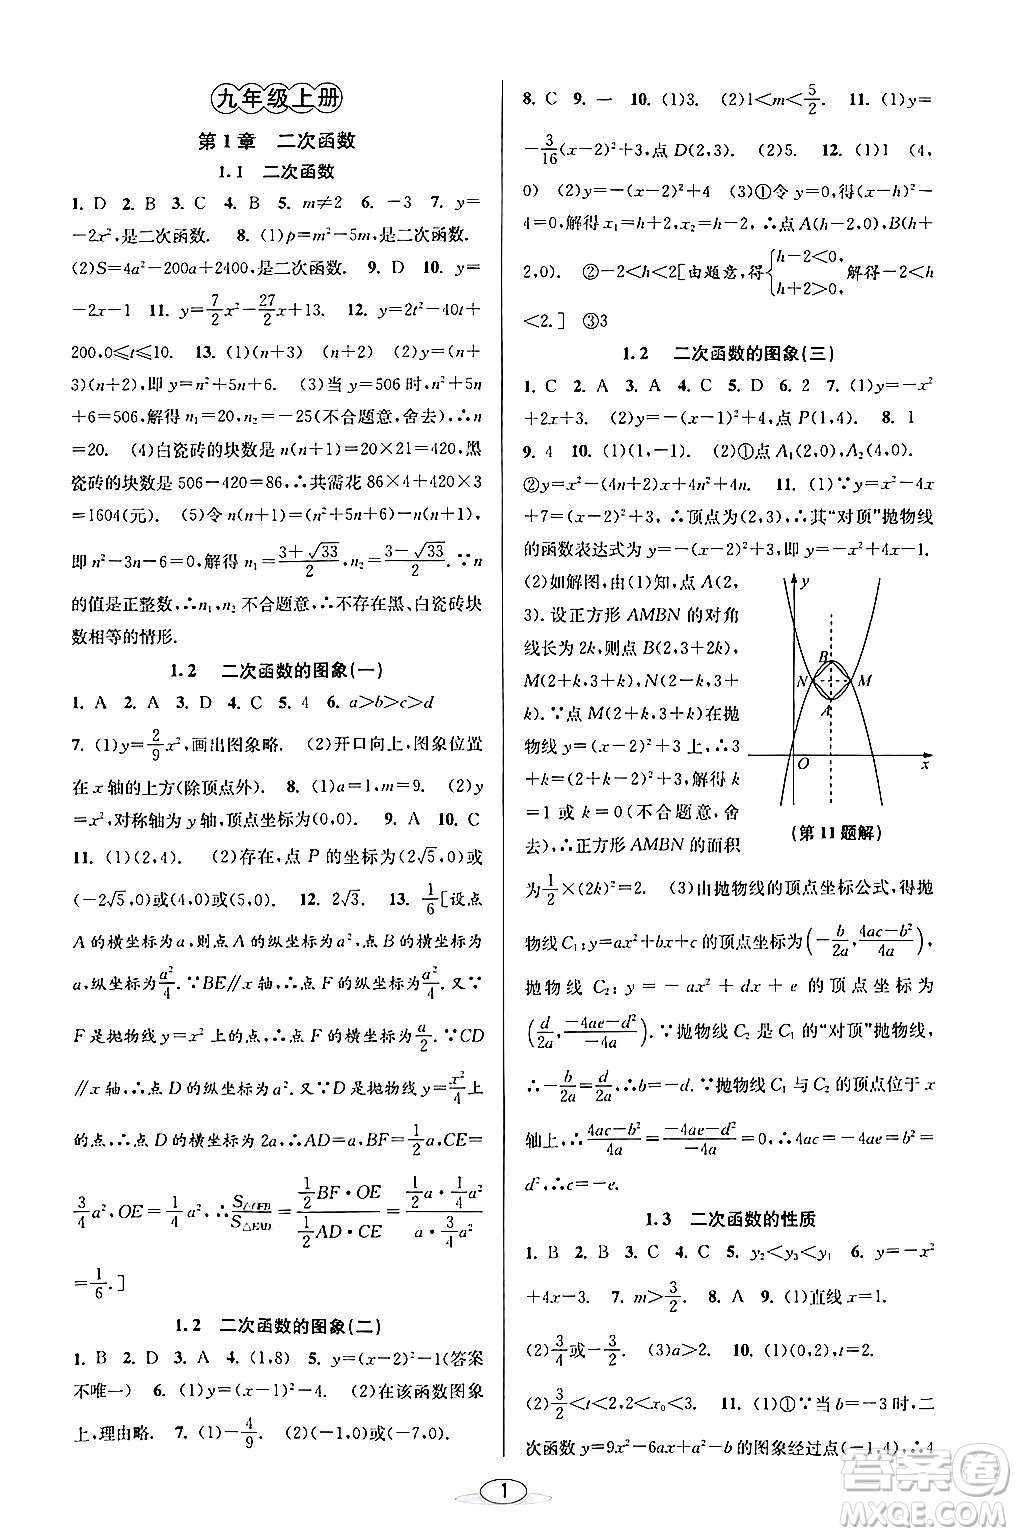 九年级上册
第1章　二次函数
1.1　二次函数
1. D　2. B　3. C　4. B　5. m≠2　6. －3　7. y＝
－2x²,是二次函数.　8. (1)p＝m²－5m,是二次函数.
(2)S＝4a²－200a＋2400,是二次函数.　9. D　10. y＝
－2x－1　11. y＝7/2x²－27/2x＋13　12. y＝2t²－40t＋
200,0≤t≤10.　13. (1)(n＋3)　(n＋2)　(2)y＝(n＋
3)(n＋2),即 y＝n²＋5n＋6.　(3)当 y＝506 时,n²＋5n
＋6＝506,解得 n₁＝20,n₂＝－25(不合题意,舍去),∴n
＝20.　(4)白瓷砖的块数是 n(n＋1)＝20×21＝420,黑
瓷砖的块数是 506－420＝86,∴共需花 86×4＋420×3
＝1604(元).　(5)令 n(n＋1)＝(n²＋5n＋6)－n(n＋1),
即 n²－3n－6＝0,解得 n₁＝(3＋√33)/2,n₂＝(3－√33)/2.∵n
的值是正整数,∴n₁,n₂ 不合题意,∴不存在黑、白瓷砖块
数相等的情形.
1.2　二次函数的图象(一)
1. A　2. A　3. D　4. C　5. 4　6. a＞b＞c＞d
7. (1)y＝2/9x²,画出图象略.　(2)开口向上,图象位置
在 x 轴的上方(除顶点外).　8. (1)a＝1,m＝1.　(2)y
＝x²,对称轴为 y 轴,顶点坐标为(0,0).　9. A　10. C
11. (1)(2,4).　(2)存在,点 P 的坐标为(2√5,0)或
(－2√5,0)或(4,0).　12. 2√3.　13. 1/6[设点
A 的横坐标为 a,则点 A 的纵坐标为 a²,点 B 的横坐标为
a,纵坐标为a²/4.∵BE∥x 轴,∴点 F 的纵坐标为a²/4.又∵
F 是抛物线 y＝x² 上的点,∴点 F 的横坐标为a/2.∵CD
∥x 轴,∴点 D 的纵坐标为 a².又∵点 D 是抛物线 y＝x²/4上
的点,∴点 D 的横坐标为 2a,∴AD＝a,BF＝1/2a,CE＝
3/4a²,OE＝1/4a²,∴S△OFB/S△EAD＝(1/2BF·OE)/(1/2AD·CE)＝(1/2a·1/4a²)/(a·3/4a²)
＝1/6.]
1.2　二次函数的图象(二)
1. B　2. D　3. A　4. (1,8)　5. y＝(x－2)²－1(答案
不唯一)　6. (1)y＝(x－1)²－4.　(2)在该函数图象
上,理由略.　7. (1)－4/9.　(2)(－1,0)或(－7,0).
8. C　9. 一　10. (1)3.　(2)1＜m＜5/2.　11. (1)y＝
－3/16(x－2)²＋3,点 D(2,3).　(2)5.　12. (1)1　(4,
0)　(2)y＝－(x－2)²＋4　(3)①令 y＝0,得(x－h)²－
4＝0,解得 x₁＝h＋2,x₂＝h－2,∴点 A(h－2,0),B(h＋
2,0).　②－2＜h＜2[由题意,得{h－2＜0,h＋2＞0,解得－2＜h
＜2.]　③3
1.2　二次函数的图象(三)
1. C　2. A　3. A　4. A　5. D　6. 2　7. (1)y＝－x²
＋2x＋3.　(2)y＝－(x－1)²＋4,点 P(1,4).　8. 1
9. 4　10. (1)(1,－1).　(2)①点 A₁(2,0),A₂(4,0).
②y＝x²－(4n＋2)x＋4n²＋4n.　11. (1)∵y＝x²－4x
＋7＝(x－2)²＋3,∴顶点为(2,3),∴其“对顶”抛物线
的函数表达式为 y＝－(x－2)²＋3,即 y＝－x²＋4x－1.
(2)如解图,由(1)知,点 A(2,
3).设正方形 AMBN 的对角
线长为 2k,则点 B(2,3＋2k),
M(2＋k,3＋k),N(2－k,3＋
k).∵点 M(2＋k,3＋k)在抛
物线 y＝(x－2)²＋3 上,∴3
＋k＝(2＋k－2)²＋3,解得 k
＝1 或 k＝0(不合题意,舍
去),∴正方形 AMBN 的面积
y
B
N
M
A
O
x
(第 11 题解)
为1/2×(2k)²＝2.　(3)由抛物线的顶点坐标公式,得抛
物线 C₁:y＝ax²＋bx＋c 的顶点坐标为(－b/2a,(4ac－b²)/4a),
抛物线 C₂:y＝－ax²＋dx＋e 的顶点坐标为
(d/2a,(－4ae－d²)/－4a).∵抛物线 C₂ 是 C₁ 的“对顶”抛物线,
∴－b/2a＝d/2a,∴b＝－d.∵抛物线 C₁ 与 C₂ 的顶点位于 x
轴上,∴(4ac－b²)/4a＝(－4ae－d²)/－4a＝0,∴4ac＝－4ae＝b²＝
d²,∴c＝－e.
1.3　二次函数的性质
1. B　2. B　3. B　4. C　5. y₂＜y₃＜y₁　6. y＝－x²
＋4x－3.　7. m＞3/2.　8. A　9. (1)直线 x＝1.
(2)3/4或－3/2.　(3)a＞2.　10. (1)(0,2),t＝2.
(2)3/2＜t＜2,2＜x₀＜3.　11. (1)①∵当 b＝－3 时,二
次函数 y＝9x²－6ax＋a²－b 的图象经过点(－1,4),∴4
1
答案卷
MXQE.COM